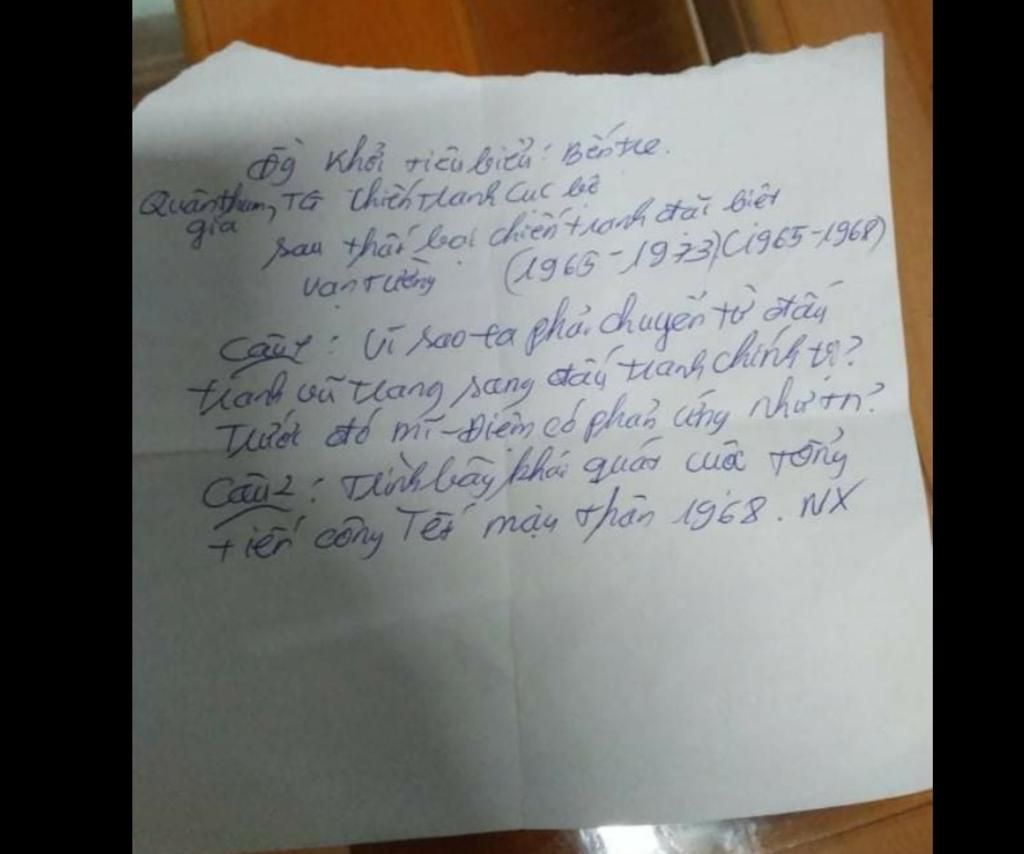 Đg Khởi tiêu biểu: Bến tre.
Quân tham, TG Chiến tranh Cục bộ
gia sau thất bại chiến tranh đặc biệt
vạn tường (1965-1973)(1965-1968)
Câu 1: Vì sao ta phải chuyển từ đấu
tranh vũ trang sang đấu tranh chính trị?
Trước đó mĩ-Điệm có phản ứng như tn?
Câu 2: Trình bày khái quát cuộc tổng
tiến công Tết mậu thân 1968. NX